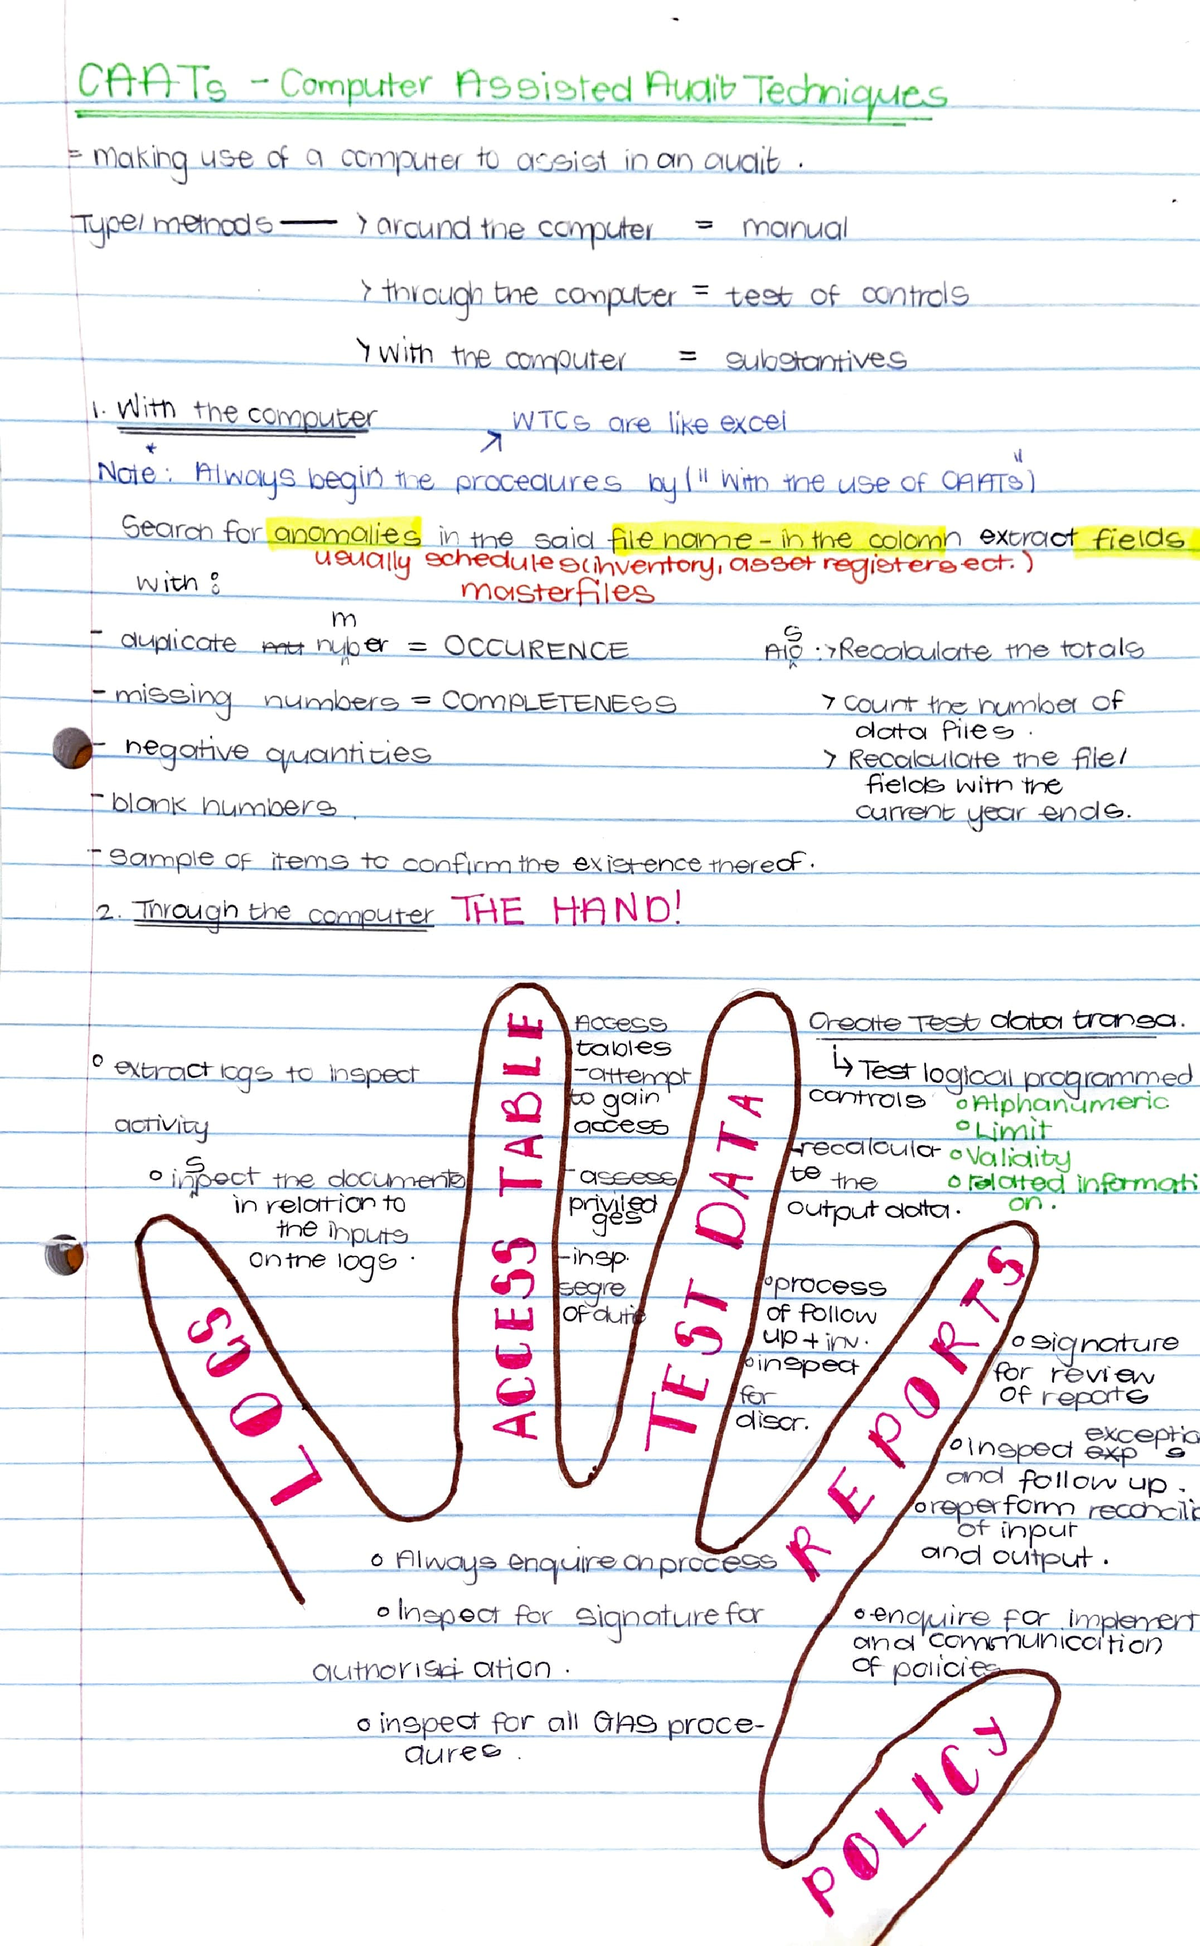 CAATs - Computer Assisted Audit Techniques
= making use of a computer to assist in an audit.
Type/methods — > around the computer = manual
> through the computer = test of controls
> with the computer = substantives
1. With the computer
↗ WTCs are like excel
* Note: Always begin the procedures by ("With the use of CAATs")
Search for anomalies in the said file name - in the colomn extract fields
usually schedules(inventory, asset registers ect.)
with: masterfiles
- duplicate number = OCCURENCE
- missing numbers = COMPLETENESS
- negative quantities
- blank numbers.
- sample of items to confirm the existence thereof.
Also :> Recalculate the totals
> count the number of
data files.
> Recalculate the file/
fields with the
current year ends.
2. Through the computer THE HAND!
° extract logs to inspect
activity
° inspect the documents
in relation to
the inputs
on the logs.
LOGS
ACCESS TABLE
Access
tables
-attempt
to gain
access
- assess
priviled
ges
-insp.
segre
of dutie
TEST DATA
Create Test data transa.
↳ Test logical programmed
controls ° Alphanumeric
° Limit
° Validity
° related informati
on.
-recalcula
te the
output data.
° process
of follow
up + inv.
° inspect
for
discr.
REPORTS
° signature
for review
of reports
° Inspect exceptio s
and follow up.
° reperform reconcili
of input
and output.
° Always enquire on process
° Inspect for signature for
authorisation.
° inspect for all GAS proce-
dures.
° enquire for implement
and communication
of policies
POLICY